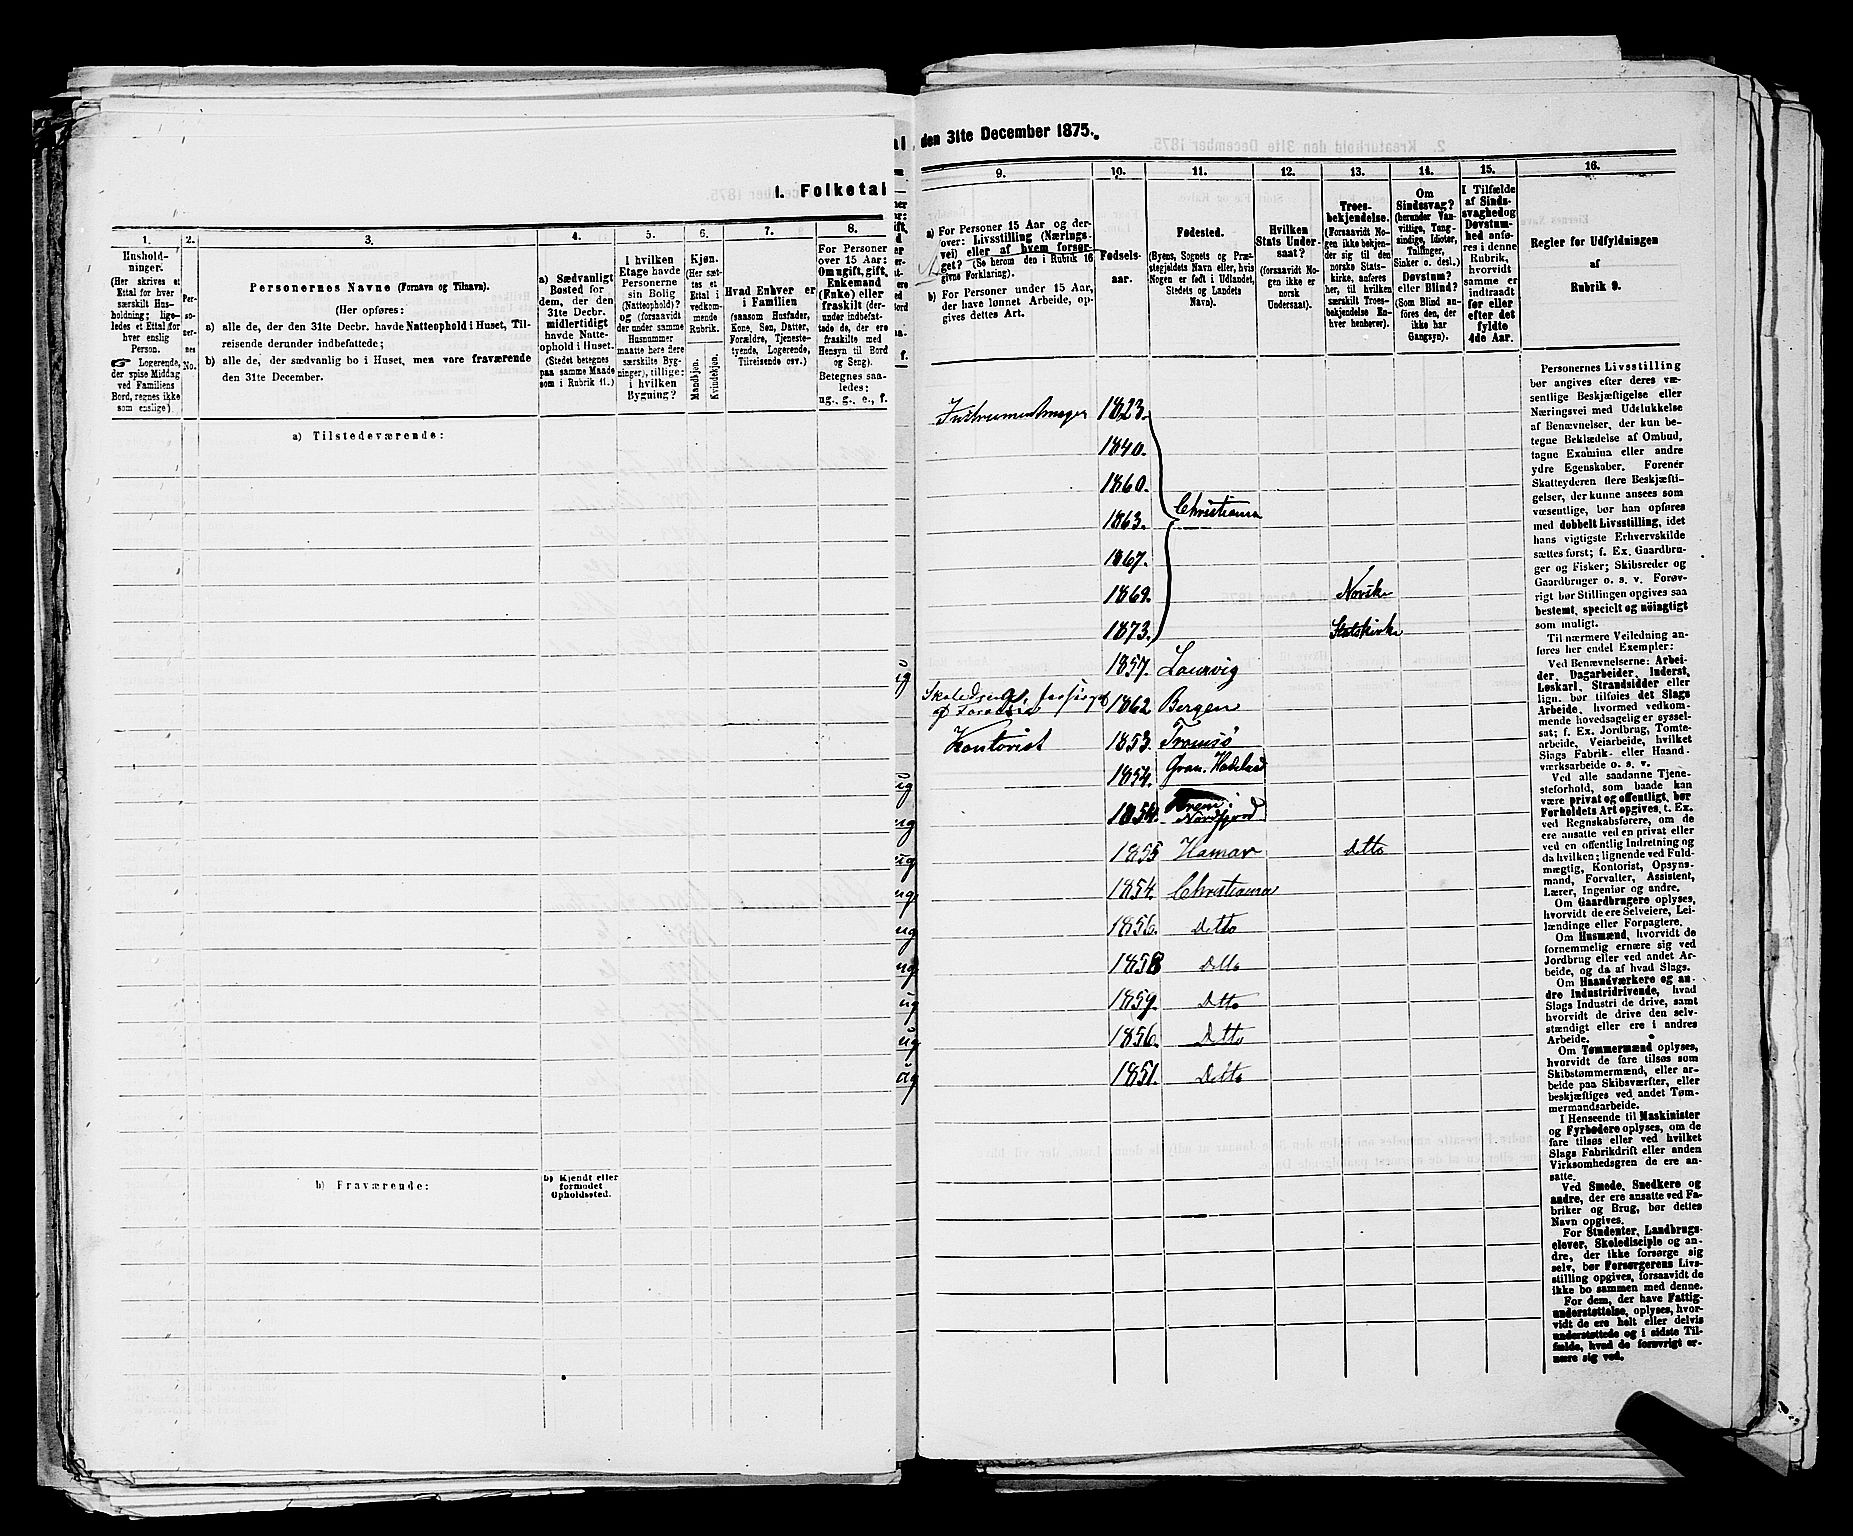 1. Folketal
den 31te December 1875.
1.
Hushold-
ninger.
(Her skrives et
Ettal for hver
særskilt Hus-
holdning; lige-
ledes et Ettal for
hver enslig
Person.
Logerende,
der spise Middag
ved Familiens
Bord, regnes ikke
som enslige)
2.
Per-
so-
ner-
nes
No.
3.
Personernes Navne (Fornavn og Tilnavn).
(Her opføres:
a) alle de, der den 31te Decbr. havde Natteophold i Huset, Til-
reisende derunder indbefattede;
b) alle de, der sædvanlig bo i Huset, men vare fraværende
den 31te December.
a) Tilstedeværende:
b) Fraværende:
4.
a) Sædvanligt
Bosted for
dem, der den
31te Decbr.
midlertidigt
havde Natte-
ophold i Huset.
(Stedet betegnes
paa samme Maade
som i Rubrik 11.)
b) Kjendt eller
formodet
Opholdssted.
5.
I hvilken
Etage havde
Personerne
sin Bolig
(Natteophold)?
og (forsaavidt
der under samme
Husnummer
maatte here flere
særskilte Byg-
ninger), tillige:
i hvilken
Bygning?
6.
Kjøn.
(Her sæt-
tes et
Ettal i
vedkom-
mende
Rubrik.
Mandkjøn.
Kvindekjøn.
7.
Hvad Enhver er
i Familien
(saasom Husfader,
Kone, Søn, Datter,
Forældre, Tjeneste-
tyende, Logerende,
Tilreisende osv.)
8.
For Personer
over 15 Aar:
Om ugift, gift,
Enkemand
(Enke) eller
fraskilt (der-
under indbefat-
tede de, der ere
fraskilte med
Hensyn til Bord
og Seng).
Betegnes saa-
ledes:
ug., g., e., f.
9.
a) For Personer 15 Aar og der-
over: Livsstilling (Nærings-
vei) eller af hvem forsør-
get? (Se herom den i Rubrik 16
givne Forklaring).
b) For Personer under 15 Aar,
der have lønnet Arbeide, op-
gives dettes Art.
10.
Fødsels-
aar.
11.
Fødested.
(Byens, Sognets og Præs-
tegjeldets Navn eller, hvis
Nogen er født i Udlandet,
Stedets og Landets
Navn).
12.
Hvilken
Stats Under-
saat?
(forsaavidt No-
gen ikke er
norsk
Undersaat).
13.
Troes-
bekjendelse.
(Forsaavidt No-
gen ikke bekjen-
der sig til den
norske Stats-
kirke, anføres
her, til hvilken
særskilt Troes-
bekjendelse En-
hver henhører).
14.
Om
Sindssvag?
(herunder Van-
vittige, Tung-
sindige, Idioter,
Tullinger,
Sinker o. desl.)
Døvstum?
eller Blind?
(Som Blind an-
føres den, der
ikke har
Gangsyn).
15.
I Tilfælde
af Sinds-
svaghed og
Døvstum-
hed anfø-
res i denne
Rubrik,
hvorvidt
samme er
indtraadt
før eller
efter det
fyldte
4de Aar.
16.
Regler for Udfyldningen
af
Rubrik 9.
Instrumentmager 1823.
1840.
1860.
1863. Christiania
1867.
1869. Norske
1873. Statskirke
ug 1857. Laurvig
1862 Bergen
Kontorist 1853. Tromsø
ug 1854. Gran. Hadeland
ug 1854. Nordfjord
ug 1855 Hamar Ditto
ug 1854. Christiania
ug 1856. Ditto
ug 1858 Ditto
ug 1859. Ditto
ug 1856. Ditto
ug 1851. Ditto
Personernes Livsstilling
bør angives efter deres væ-
sentlige Beskjæftigelse eller
Næringsvei med Udelukkelse
af Benævnelser, der kun be-
tegne Beklædelse af Ombud,
tagne Examina eller andre
ydre Egenskaber. Forener
Skatteyderen flere Beskjæfti-
gelser, der kunne ansees som
væsentlige, bør han opføres
med dobbelt Livsstilling, idet
hans vigtigste Erhvervskilde
sættes først; f. Ex. Gaardbru-
ger og Fisker; Skibsreder og
Gaardbruger o. s. v. Forøv-
rigt bør Stillingen opgives saa
bestemt, specielt og nöiagtigt
som muligt.
Til nærmere Veiledning an-
føres her endel Exempler:
Ved Benævnelserne: Arbei-
der, Dagarbeider, Inderst,
Løskarl, Strandsidder eller
lign. bør tilføies det Slags
Arbeide, hvormed vedkom-
mende hovedsagelig er syssel-
sat; f. Ex. Jordbrug, Tomte-
arbeide, Veiarbeide, hvilket
Slags Fabrik- eller Haand-
værksarbeide o. s. v.
Ved alle saadanne Tjene-
steforhold, som baade kan
være privat og offentligt, bør
Forholdets Art opgives, t. Ex.
ved Regnskabsførere, om de
ere ansatte ved en privat eller
ved en offentlig Indretning og
da hvilken; lignende ved Fuld-
mægtig, Kontorist, Opsyns-
mand, Forvalter, Assistent,
Lærer, Ingeniør og andre.
Om Gaardbrugere oplyses,
hvorvidt de ere Selveiere, Lei-
lændinge eller Forpagtere.
Om Husmænd, hvorvidt de
fornemmelig ernære sig ved
Jordbrug eller ved andet Ar-
beide, og da af hvad Slags.
Om Haandværkere og an-
dre Industridrivende, hvad
Slags Industri de drive, samt
hvorvidt de drive den selv-
stændigt eller ere i andres
Arbeide.
Om Tømmermænd oplyses,
hvorvidt de fare tilsøs som
Skibstømmermænd, eller ar-
beide paa Skibsværfter, eller
beskjæftiges ved andet Tøm-
mermandsarbeide.
I Henseende til Maskinister
og Fyrbødere oplyses, om de
fare tilsøs eller ved hvilket
Slags Fabrikdrift eller anden
Virksomhedsgren de ere an-
satte.
Ved Smede, Snedkere og
andre, der ere ansatte ved Fa-
briker og Brug, bør dettes
Navn opgives.
For Studenter, Landbrugs-
elever, Skoledisciple og an-
dre, der ikke forsørge sig
selv, bør Forsørgerens Livs-
stilling opgives, forsaavidt de
ikke bo sammen med denne.
For dem, der have Fattig-
understøttelse, oplyses, hvor-
vidt de ere helt eller delvis
understøttede og i sidste Til-
fælde, hvad de forøvrigt er-
nære sig ved.